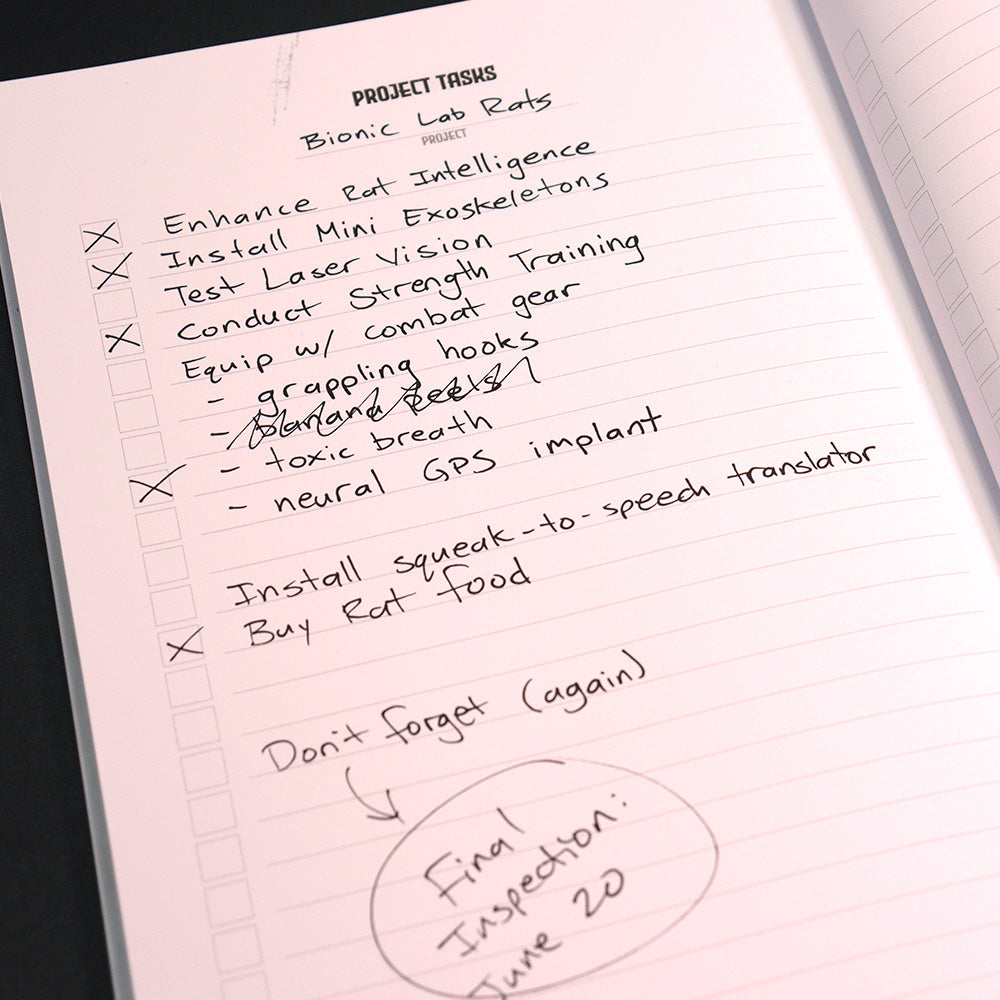 PROJECT TASKS
Bionic Lab Rats
PROJECT
Enhance Rat Intelligence
Install Mini Exoskeletons
Test Laser Vision
Conduct Strength Training
Equip w/ combat gear
- grappling hooks
- Banana Peels
- toxic breath
- neural GPS implant
Install squeak-to-speech translator
Buy Rat food
Don't forget (again)
Final
Inspection:
June 20